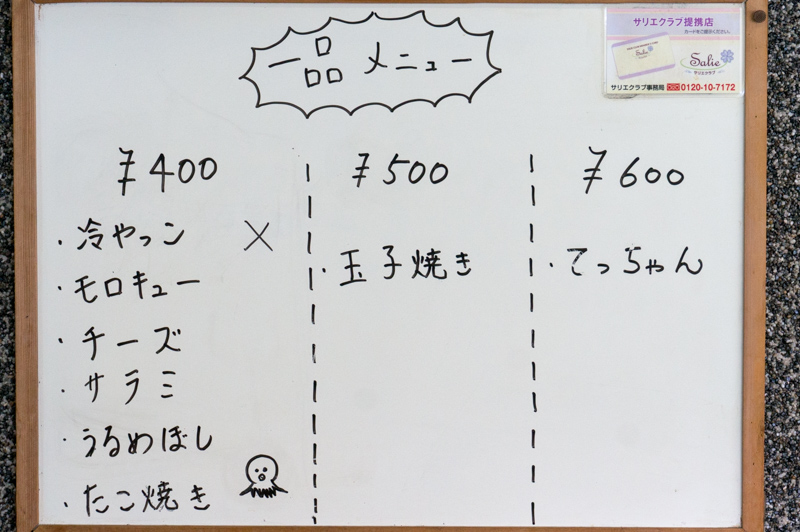 一品メニュー
サリエクラブ提携店
カードをご提示ください。
Salie
サリエクラブ
サリエクラブ事務局 0120-10-7172
¥400
・冷やっコ ×
・モロキュー
・チーズ
・サラミ
・うるめぼし
・たこ焼き
¥500
・玉子焼き
¥600
・てっちゃん